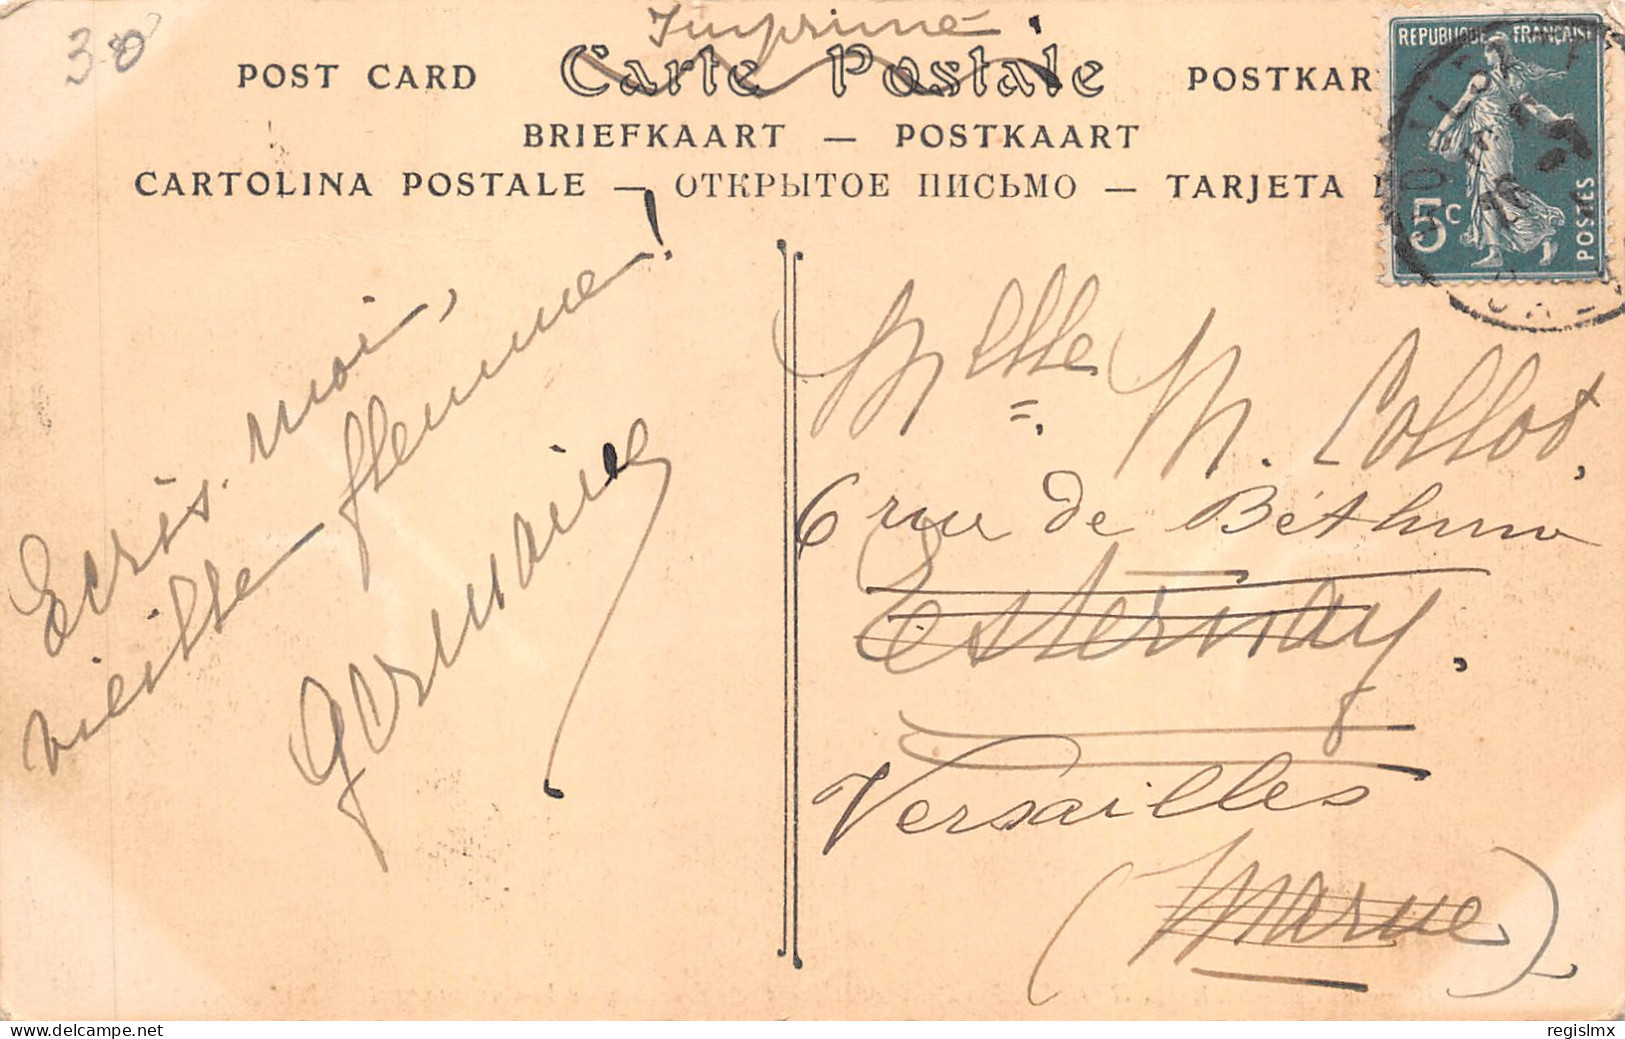 30
Imprimé
POST CARD Carte Postale POSTKAR
BRIEFKAART — POSTKAART
CARTOLINA POSTALE — ОТКРЫТОЕ ПИСЬМО — TARJETA
REPUBLIQUE FRANÇAISE
5c
POSTES
Ecris-moi,
vieille flemme!
Germaine
Melle M. Collot,
6 rue de Béthune
Esternay.
Versailles
(Marne)
regislmx
delcampe.net